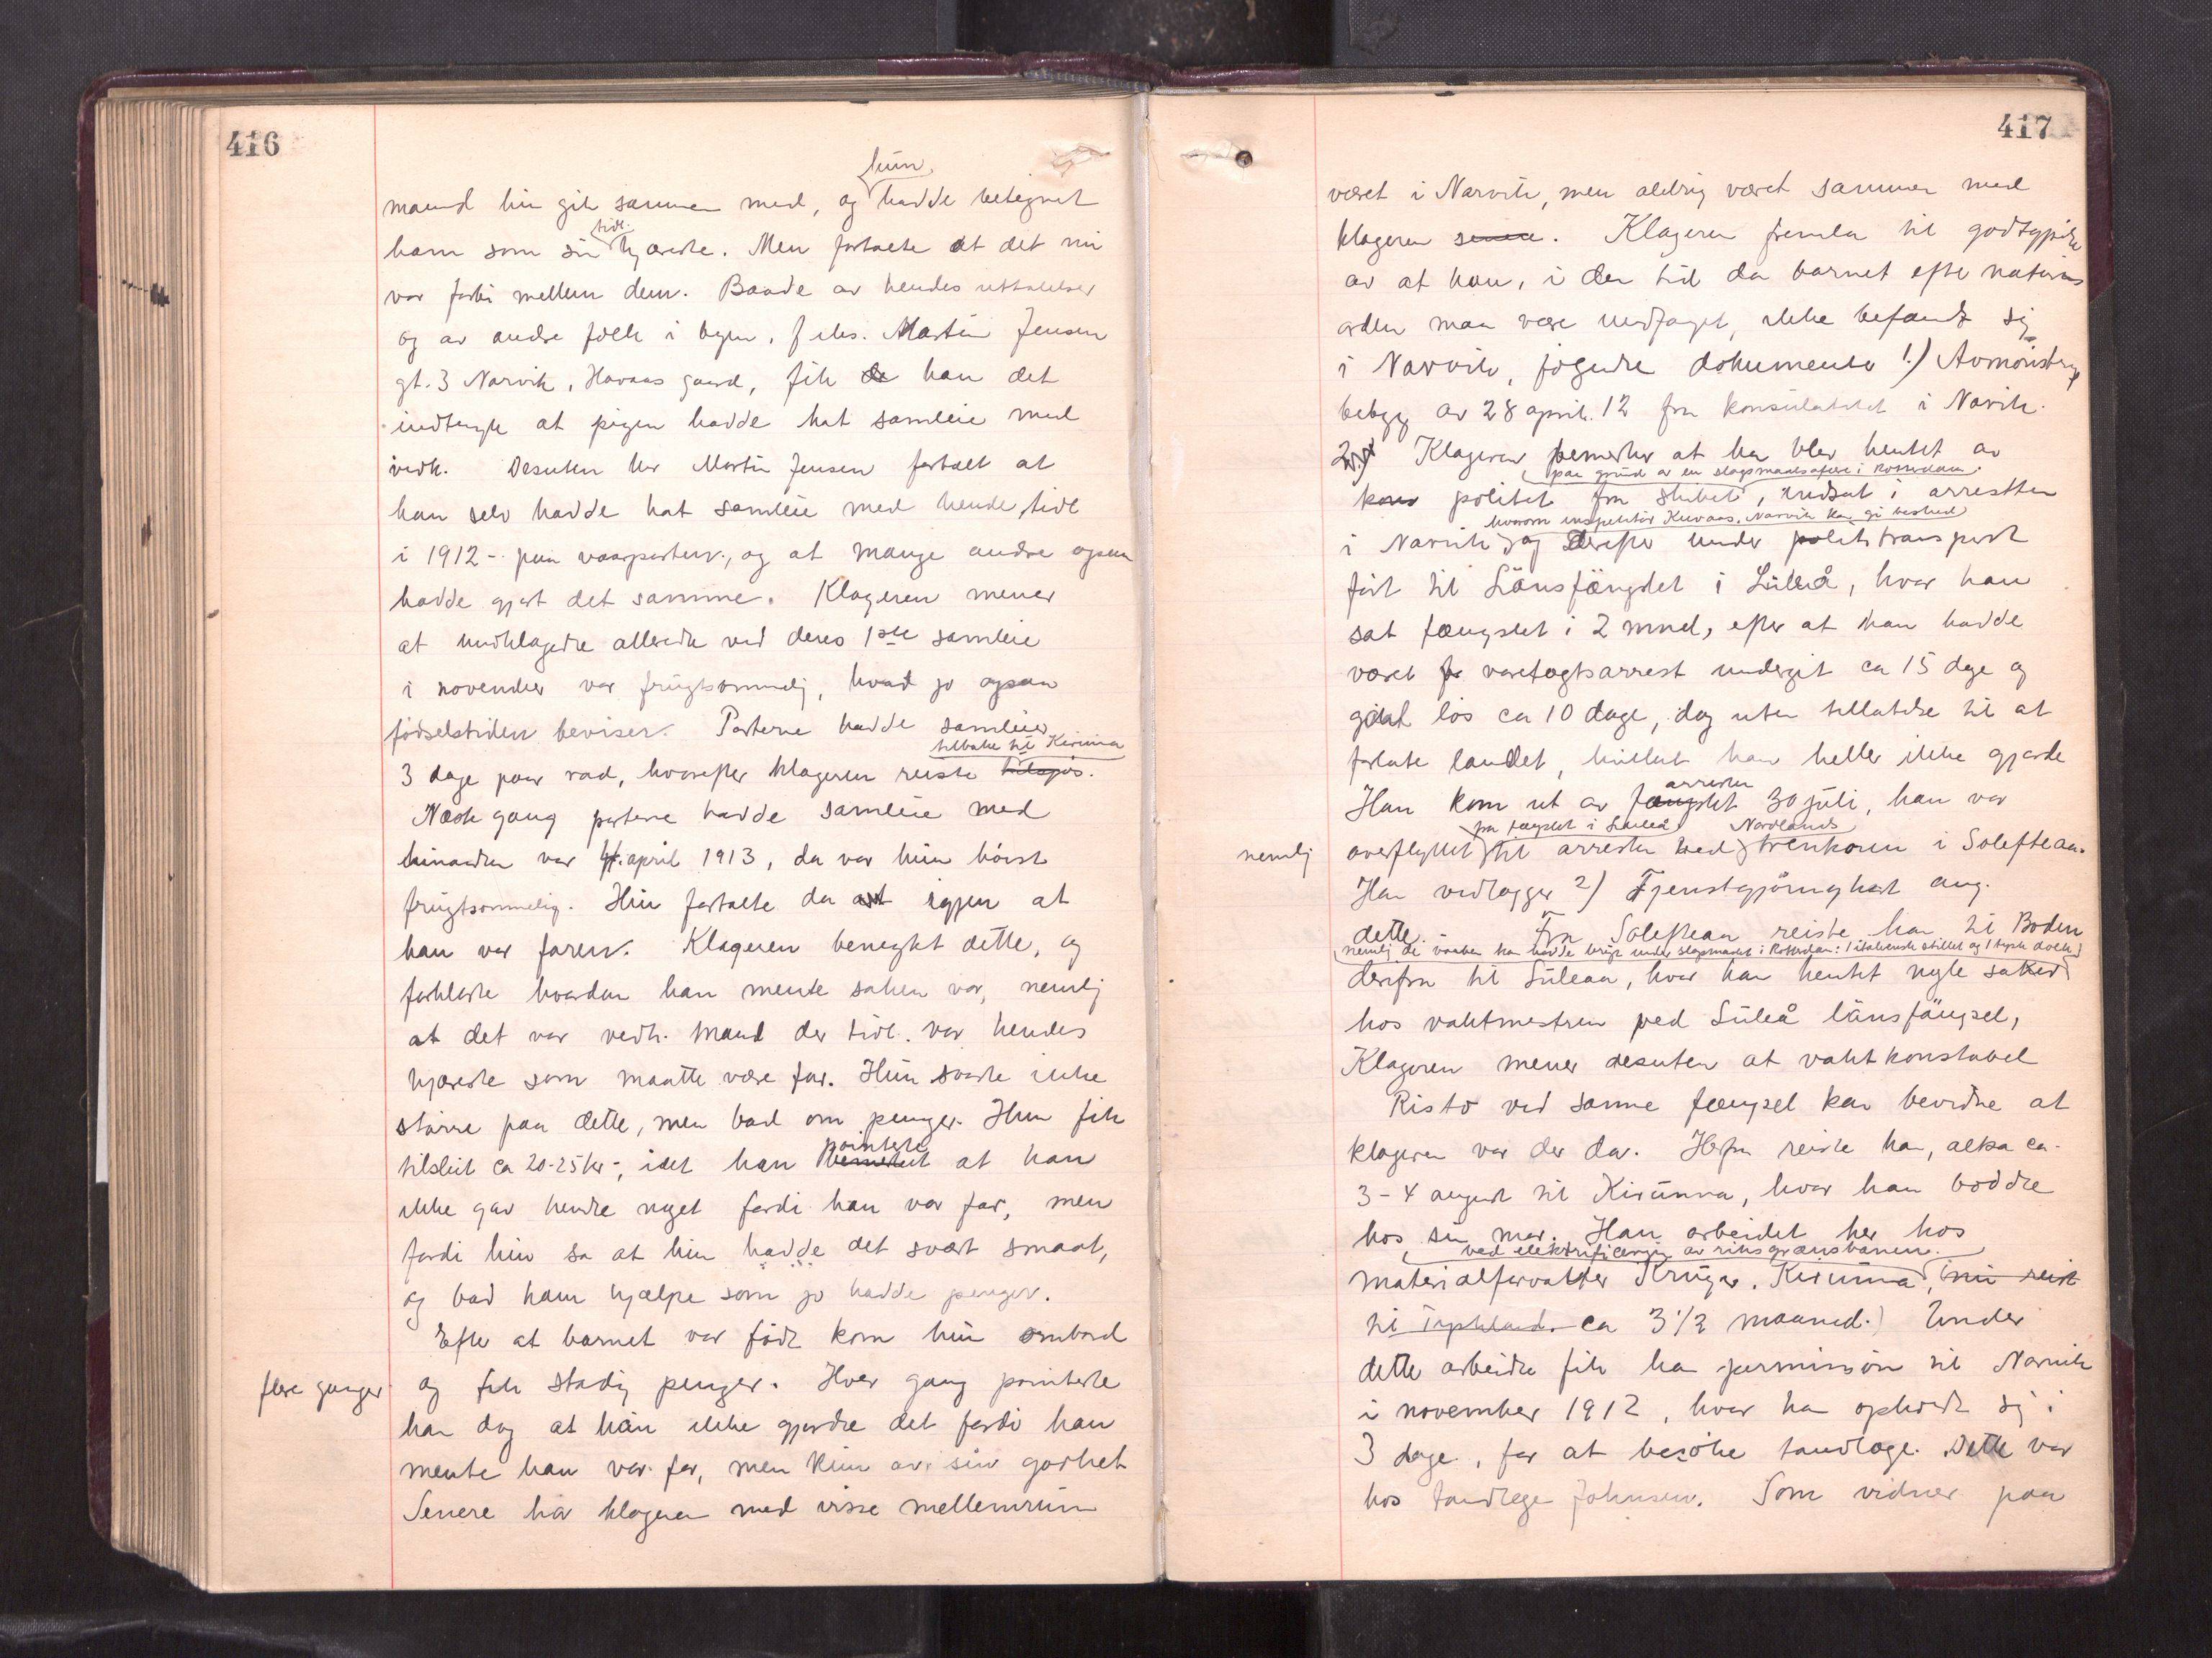 416
hun
mand hun gik sammen med, og hadde betegnet
tidl.
ham som sin kjæreste. Men fortalte at det nu
var forbi mellem dem. Baade av hendes uttalelser
og av andre folk i byen, f. eks. Martin Jensen
gt. 3 Narvik, Havaas gaard, fik de han det
indtryk at pigen hadde hat samleie med
vedk. Desuten har Martin Jensen fortalt at
han selv hadde hat samleie med hende, tidl
i 1912 - paa vaarparten, og at mange andre ogsaa
hadde gjort det samme. Klageren mener
at indklagede allerede ved deres 1ste samleie
i november var frugtsommelig, hvad jo ogsaa
fødselstiden beviser. Parterne hadde samleie
tilbake til Kiruna
3 dage paa rad, hvorefter klageren reiste tilsjøs.
Næste gang parterne hadde samleie med
hinanden var 4. april 1913, da var hun høist
frugtsommelig. Hun fortalte da at igjen at
han var faren. Klageren benegtet dette, og
forklarte hvordan han mente saken var, nemlig
at det var vedk. mand der tidl. var hendes
kjæreste som maatte være far. Hun svarte ikke
større paa dette, men bad om penger. Hun fik
pointerte
tilslut ca 20-25 kr-, idet han bemerket at han
ikke gav hende noget fordi han var far, men
fordi hun sa at hun hadde det svært smaat,
og bad ham hjælpe som jo hadde penger.
Efter at barnet var født kom hun ombord
flere ganger
og fik stadig penger. Hver gang pointerte
han dog at han ikke gjorde det fordi han
mente han var far, men kun av sin godhet
Senere har klageren med visse mellemrum
417
været i Narvik, men aldrig været sammen med
klageren senere. Klageren fremla til godtgjørelse
av at han, i den tid da barnet efter naturens
orden maa være undfanget, ikke befandt sig
i Narvik, følgende dokumenter 1.) Avmønstrings
bebyg av 28 april. 12 fra konsulatet i Narvik.
2.) Klageren bemerker at han blev hentet av
paa grund av en slagsmaalsaffære i Rotterdam.
kons politiet fra skibet, indsat i arresten
hvorom inspektør Kuvaas, Narvik kan gi besked
i Narvik og derefter under politistransport
ført til Länsfängslet i Luleå, hvor han
sat fængslet i 2 mnd, efter at han hadde
været for varetegtsarrest undergit ca 15 dage og
gaat løs ca 10 dage, dog uten tillatelse til at
forlate landet, hvilket han heller ikke gjorde
arresten
Han kom ut av fængslet 30 juli, han var
fra fængslet i Luleå Nordlands
nemlig
overflyttet til arresten ved trenkoren i Solefteaa.
Han vedlægger 2) Tjenstgjøringskort ang.
dette. - Fra Solefteaa reiste han til Boden
nemlig de vaaben han hadde brugt under slagsmaalet i Rotterdam: 1 italiensk stillet og 1 tysk dolk
derfra til Luleaa, hvor han hentet nogle saker
hos vaktmestren ved Luleå länsfängsel,
Klageren mener desuten at vaktkonstabel
Risto ved samme fængsel kan bevidne at
klageren var der da. Herfra reiste han, altsaa ca.
3-4 august til Kirunna, hvor han bodde
hos sin mor. Han arbeidet her hos
ved elektrificering av riksgrænsbanen.
materialforvalter Krüger, Kirunna (nu reist
til Tyskland. ca 3 1/2 maaned.) Under
dette arbeide fik han permission til Narvik
i november 1912, hvor han opholdt sig i
3 dage, for at besøke tandlæge. Dette var
hos tandlæge Johnsen. Som vidner paa